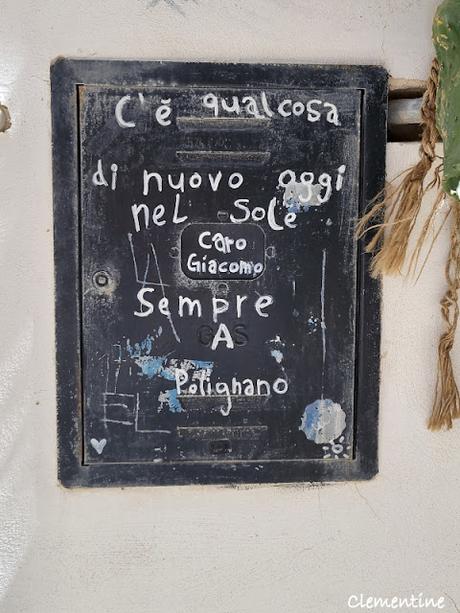 C'è qualcosa
di nuovo oggi
nel Sole
Caro
Giacomo
Sempre
GAS
A
Polignano
EL
Clementine